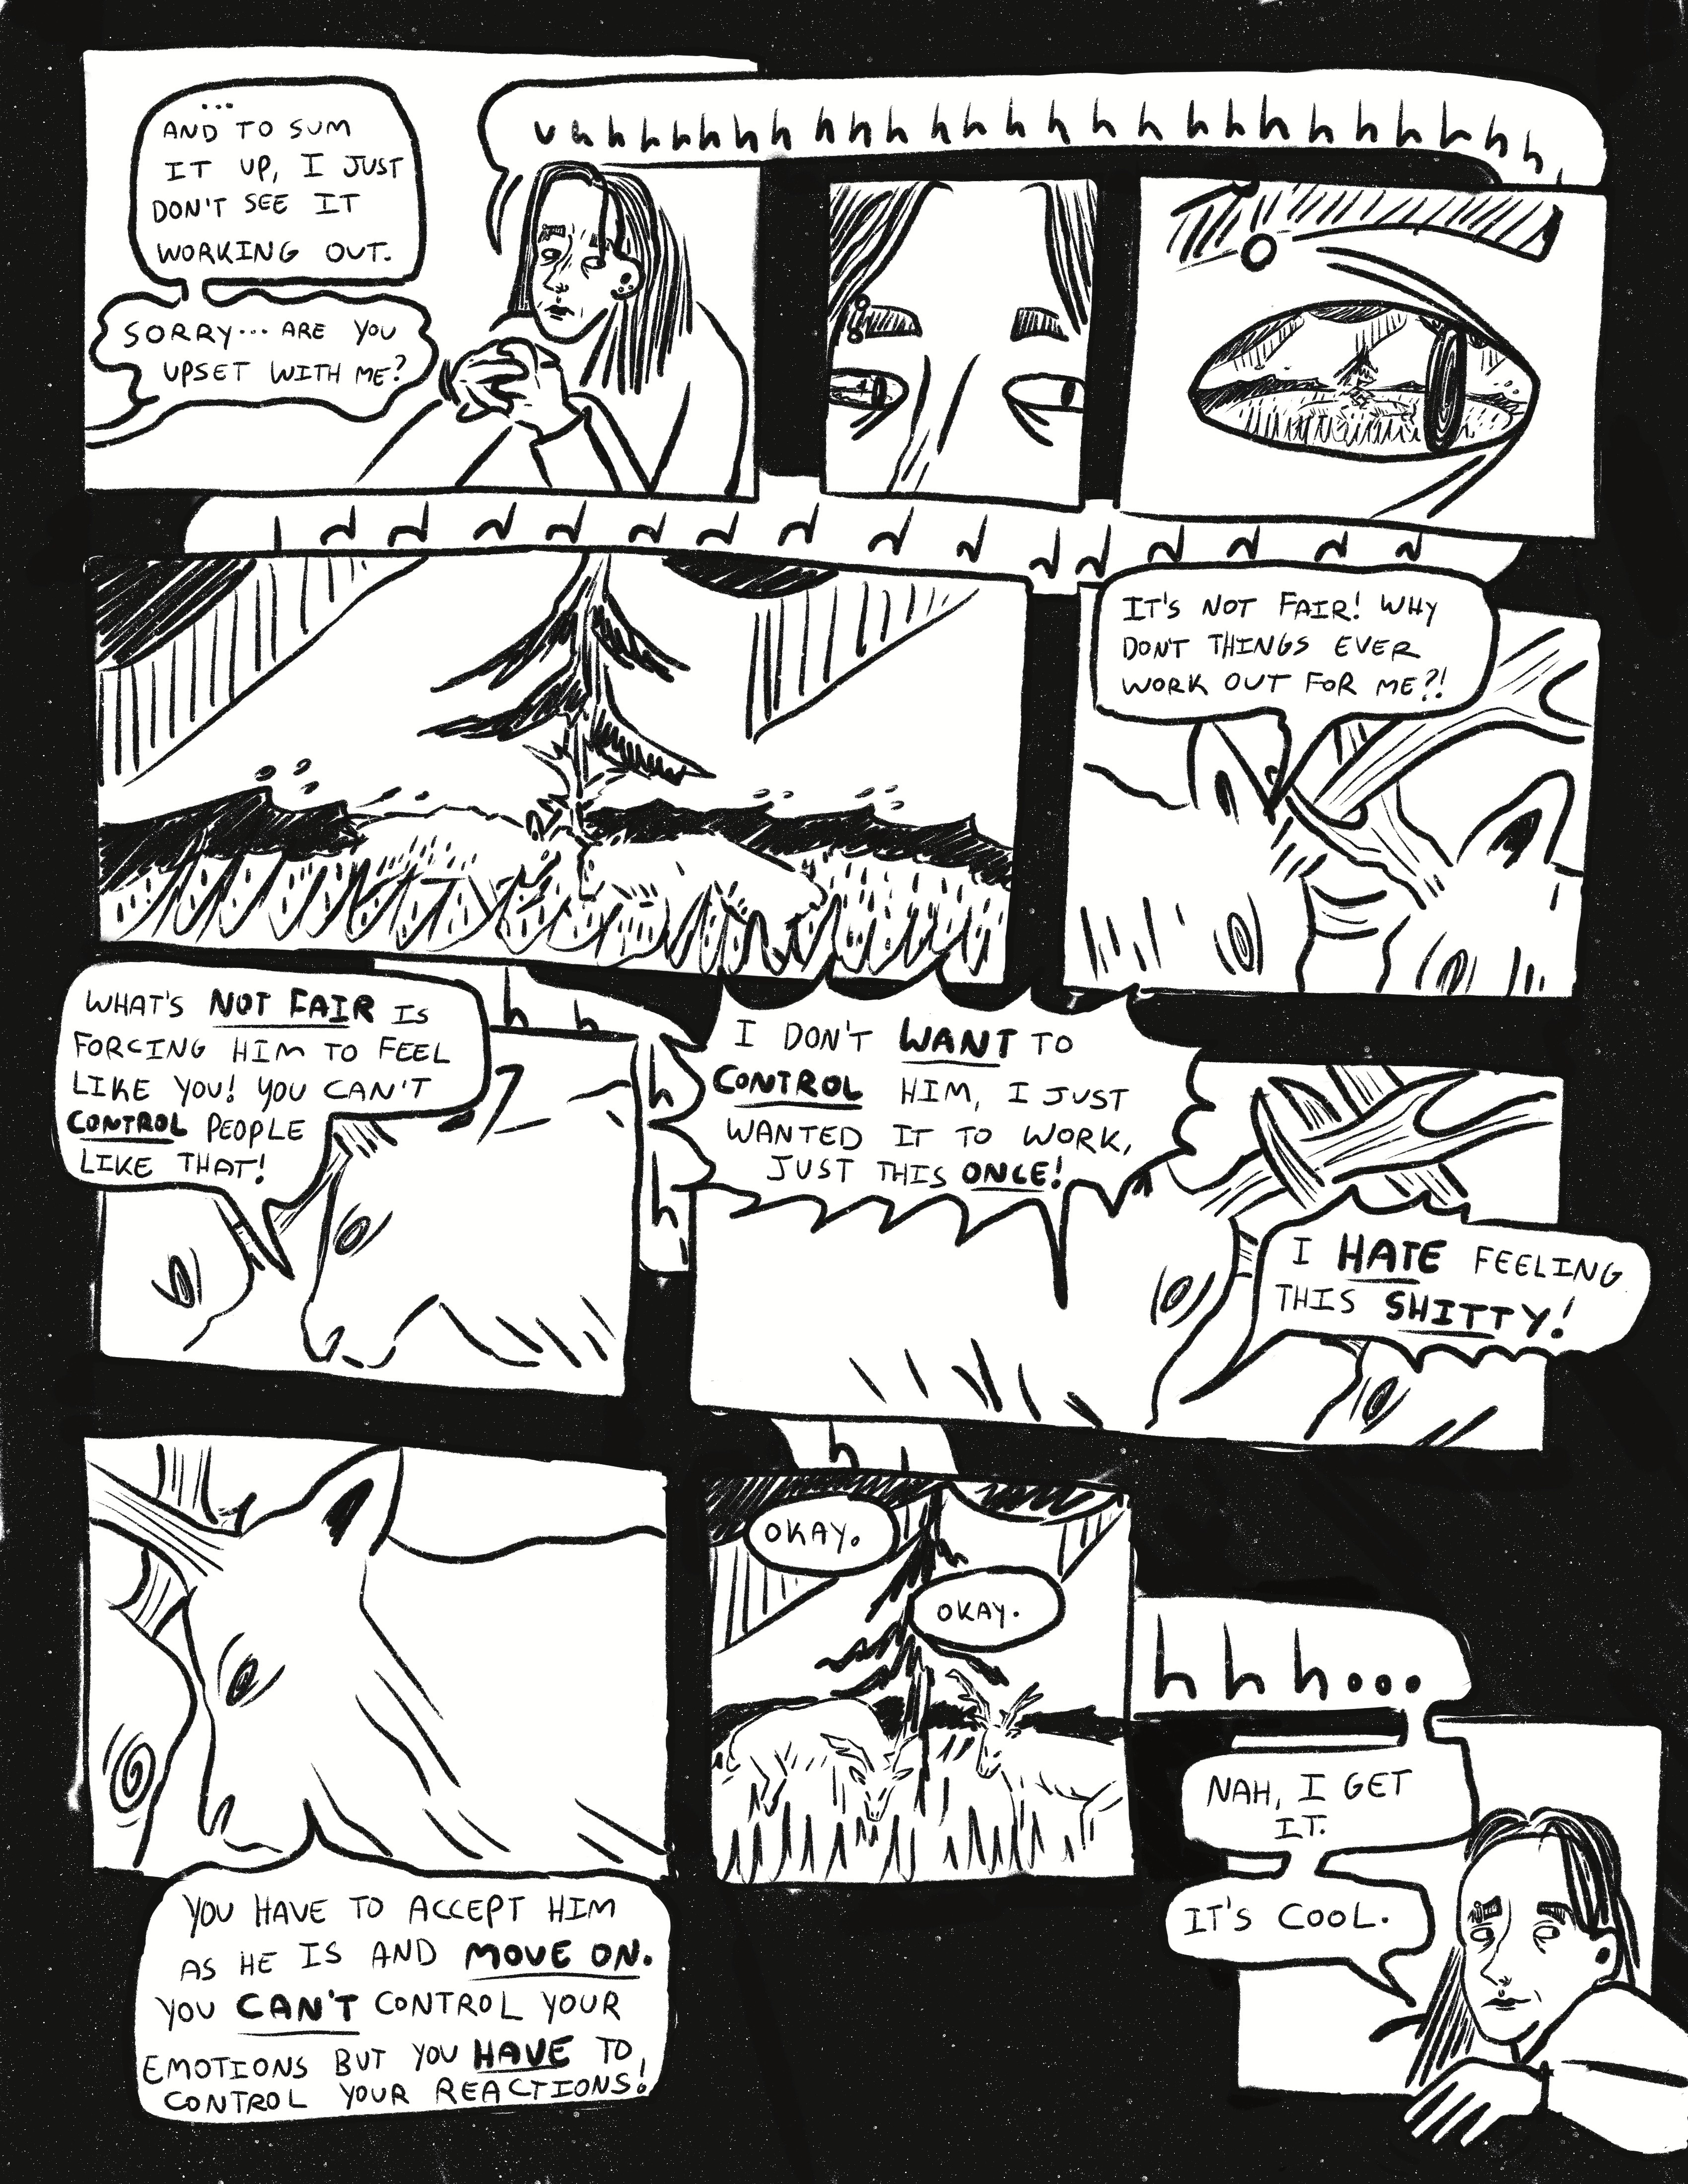 ...
AND TO SUM
IT UP, I JUST
DON'T SEE IT
WORKING OUT.
SORRY... ARE YOU
UPSET WITH ME?
uhhhhhhhhhhhhhhhhhhhhhhhh
hhhhhhhhhhhhhhhh
IT'S NOT FAIR! WHY
DON'T THINGS EVER
WORK OUT FOR ME?!
WHAT'S NOT FAIR IS
FORCING HIM TO FEEL
LIKE YOU! YOU CAN'T
CONTROL PEOPLE
LIKE THAT!
h h
h
h
h
I DON'T WANT TO
CONTROL HIM, I JUST
WANTED IT TO WORK,
JUST THIS ONCE!
I HATE FEELING
THIS SHITTY!
h h
YOU HAVE TO ACCEPT HIM
AS HE IS AND MOVE ON.
YOU CAN'T CONTROL YOUR
EMOTIONS BUT YOU HAVE TO
CONTROL YOUR REACTIONS!
OKAY.
OKAY.
hhh...
NAH, I GET
IT.
IT'S COOL.